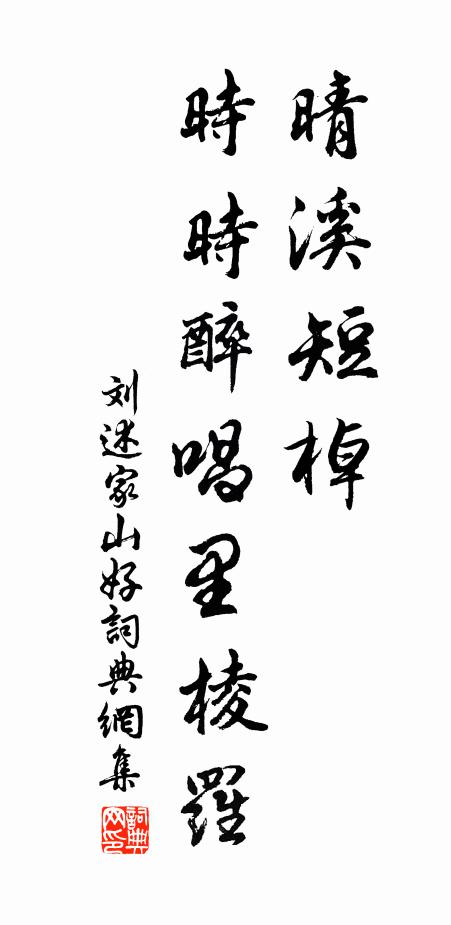 晴溪短棹
時時醉唱里棱羅
刘述家山好詞典網集
詞典网印